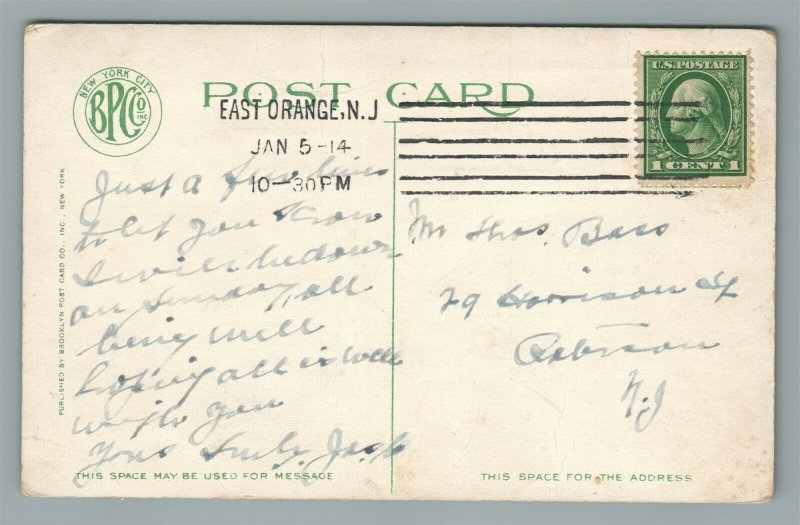 NEW YORK CITY
BPCCo INC
POST CARD
U.S. POSTAGE
1 CENT 1
EAST ORANGE, N.J
JAN 5-14
10-30PM
Just a few lines
to let you know
I will be down
on Sunday, all
being well
hoping all is well
with you
Yous
Mr Thos. Bass
29 Harrison St
N.J
PUBLISHED BY BROOKLYN POST CARD CO., INC., NEW YORK
THIS SPACE MAY BE USED FOR MESSAGE
THIS SPACE FOR THE ADDRESS